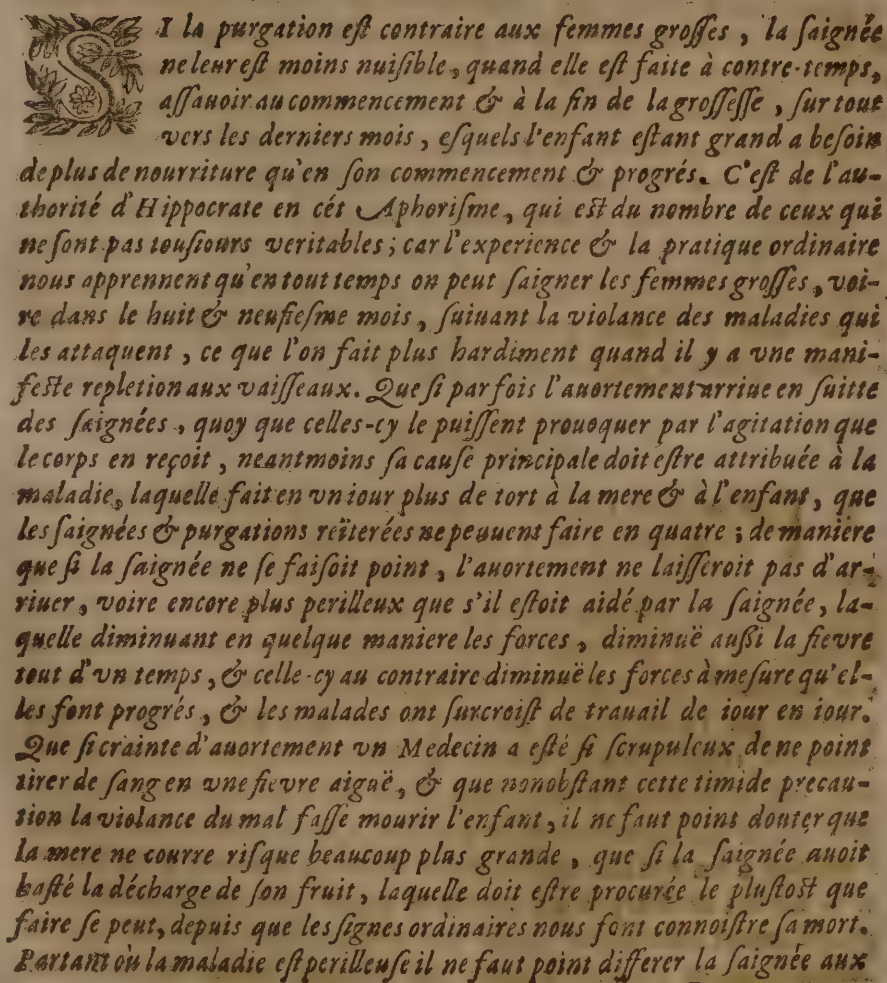 SI la purgation eſt contraire aux femmes groſſes, la ſaignée
ne leur eſt moins nuiſible, quand elle eſt faite à contre-temps,
aſſauoir au commencement & à la fin de la groſſeſſe, ſur tout
vers les derniers mois, eſquels l'enfant eſtant grand a beſoin
de plus de nourriture qu'en ſon commencement & progrés. C'eſt de l'au-
thorité d'Hippocrate en cét Aphoriſme, qui eſt du nombre de ceux qui
ne ſont pas touſiours veritables; car l'experience & la pratique ordinaire
nous apprennent qu'en tout temps on peut ſaigner les femmes groſſes, voi-
re dans le huit & neufieſme mois, ſuiuant la violance des maladies qui
les attaquent, ce que l'on fait plus hardiment quand il y a vne mani-
feſte repletion aux vaiſſeaux. Que ſi par fois l'auortement arriue en ſuitte
des ſaignées, quoy que celles-cy le puiſſent prouoquer par l'agitation que
le corps en reçoit, neantmoins ſa cauſe principale doit eſtre attribuée à la
maladie, laquelle fait en vn iour plus de tort à la mere & à l'enfant, que
les ſaignées & purgations reïterées ne peuuent faire en quatre; de maniere
que ſi la ſaignée ne ſe faiſoit point, l'auortement ne laiſſeroit pas d'ar-
riuer, voire encore plus perilleux que s'il eſtoit aidé par la ſaignée, la-
quelle diminuant en quelque maniere les forces, diminuë auſſi la fievre
tout d'vn temps, & celle-cy au contraire diminuë les forces à meſure qu'el-
les font progrés, & les malades ont ſurcroiſt de trauail de iour en iour.
Que ſi crainte d'auortement vn Medecin a eſté ſi ſcrupuleux de ne point
tirer de ſang en vne fievre aiguë, & que nonobſtant cette timide precau-
tion la violance du mal faſſe mourir l'enfant, il ne faut point douter que
la mere ne courre riſque beaucoup plus grande, que ſi la ſaignée auoit
haſté la décharge de ſon fruit, laquelle doit eſtre procurée le pluſtoſt que
faire ſe peut, depuis que les ſignes ordinaires nous font connoiſtre ſa mort.
Partant où la maladie eſt perilleuſe il ne faut point differer la ſaignée aux